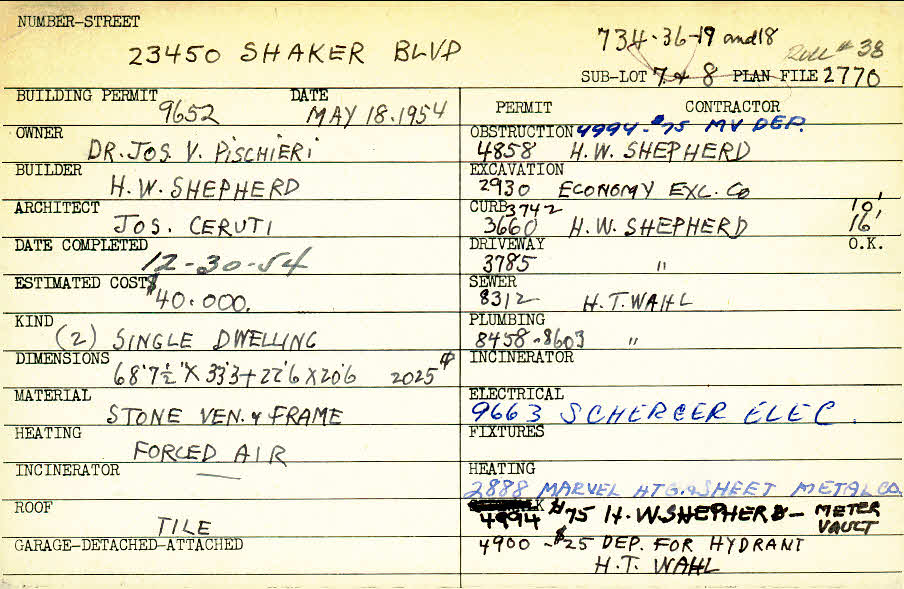 NUMBER-STREET
23450 SHAKER BLVD
734-36-19 and 18
Roll # 38
SUB-LOT 7 & 8 PLAN FILE 2770
BUILDING PERMIT DATE
9652 MAY 18.1954
OWNER
DR. JOS. V. PISCHIERI
BUILDER
H.W. SHEPHERD
ARCHITECT
JOS. CERUTI
DATE COMPLETED
12-30-54
ESTIMATED COST $
40.000.
KIND
(2) SINGLE DWELLING
DIMENSIONS
68'7½" X 33'3 + 22'6 X 20'6 2025
MATERIAL
STONE VEN. & FRAME
HEATING
FORCED AIR
INCINERATOR
—
ROOF
TILE
GARAGE-DETACHED-ATTACHED
PERMIT CONTRACTOR
OBSTRUCTION 4994-$75 MV DEP.
4858 H.W. SHEPHERD
EXCAVATION
2930 ECONOMY EXC. CO
CURB 3742 10'
3660 H.W. SHEPHERD 16'
DRIVEWAY O.K.
3785 "
SEWER
8312 H.T. WAHL
PLUMBING
8458-8603 "
INCINERATOR
ELECTRICAL
9663 SCHERCER ELEC.
FIXTURES
HEATING
2888 MARVEL HTG. & SHEET METAL CO.
4994 $75 H.W SHEPHERD - METER VAULT
4900 - $25 DEP. FOR HYDRANT
H.T. WAHL